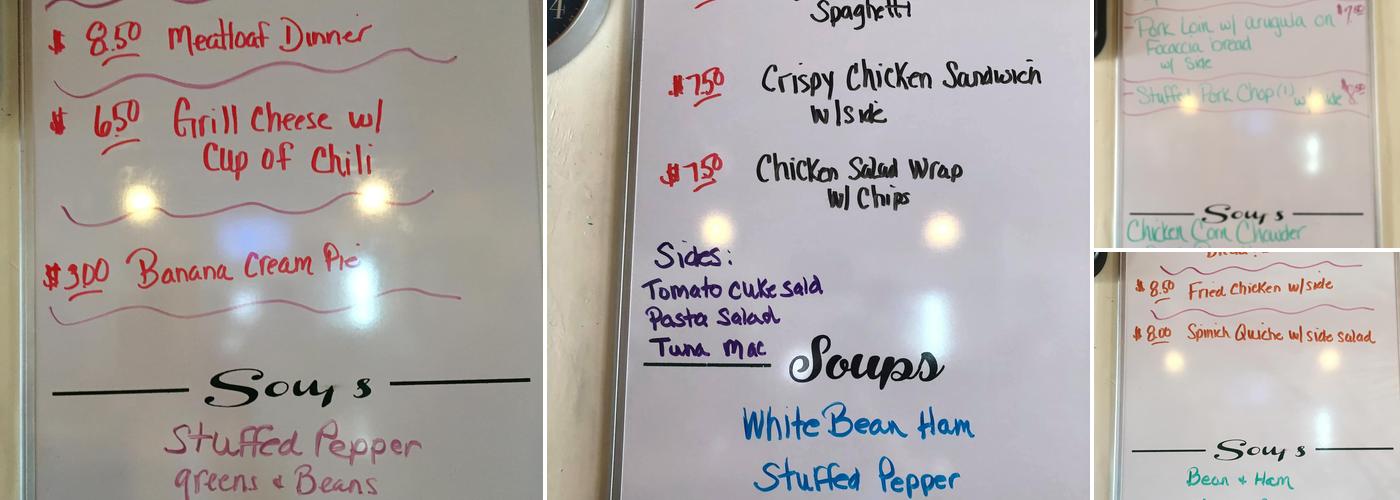 $ 8.50 Meatloaf Dinner
$ 6.50 Grill Cheese w/
Cup of Chili
$3.00 Banana Cream Pie
Soups
Stuffed Pepper
greens & Beans
4
Spaghetti
$7.50 Crispy Chicken Sandwich
w/side
$7.50 Chicken Salad Wrap
w/ Chips
Sides:
Tomato cuke salad
Pasta Salad
Tuna Mac
Soups
White Bean Ham
Stuffed Pepper
Pork Loin w/ arugula on
Focaccia bread
w/ Side
Stuffed Pork Chop (1) w/ side
Soups
Chicken Corn Chowder
$ 8.50 Fried Chicken w/side
$ 8.00 Spinich Quiche w/ side salad
Soups
Bean & Ham